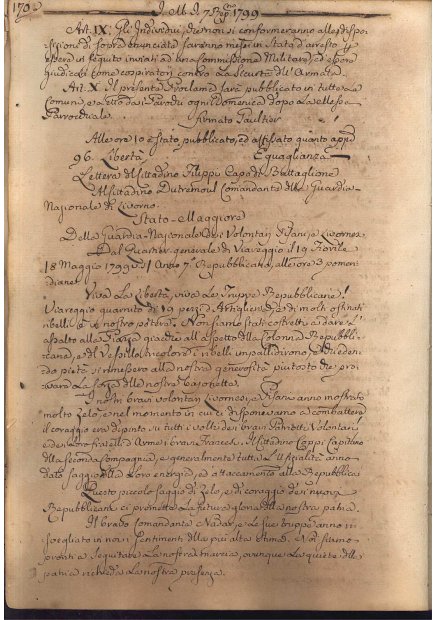 1799
Art. IX. Gli Individui, che non si conformeranno alle disposizione di sopra enunciata saranno messi in stato d'arresto,
essere in seguito inviati ad una Commissione Militare, ed
giudicati come cospiratori contro la Securtà dell'Armata.
Art. X. Il presente Proclama sarà pubblicato in tutte le
Comune, e a ogni Domenica dopo la Messa
Parrocchiale.
firmato Gaultier
Alle ore 10 è stato pubblicato, ed affissato quanto app.
96. Libertà Eguaglianza
Lettera del Cittadino Filippi Capo di Battaglione
Al Cittadino Dutremoul Comandante della Guardia
Nazionale di Livorno.
Stato-Maggiore
Della Guardia-Nazionale de Volontarj Pisani, e Livornesi
Dal Quartier generale di Viareggio il 19 Fiorile
18 Maggio 1799 Anno 7° Repubblicano, alle ore 3 pomeridiane
Viva la Libertà, viva le Truppe Repubblicane!
Viareggio guarnito di 19 pezzi d'Artiglieria, e di molti ostinati
ribelli è in nostro potere. Non siamo stati costretti a dare l'
assalto alla Piazza giacchè all'aspetto della Colonna Repubblicana,
e del Vessillo tricolore i ribelli impallidirono, e chiedendo
pietà si rimessero alla nostra generosità piuttosto che provare
la forza delle nostre bajonette.
I nostri bravi volontarj Livornesi, e Pisani anno mostrato
molto zelo, e nel momento in cui ci disponevamo a combattere
il coraggio era dipinto su tutti i volti de i bravi Volontarj
e de i loro fratelli d'Arme i bravi Francesi. Il Cittadino Coppi Capitano
della seconda Compagnia, e generalmente tutta l'Ufficialità anno
dato saggio della loro energia, ed attaccamento alla Repubblica
Questo piccolo saggio di zelo, e di coraggio de i
Repubblicani ci promette la futura gloria della nostra patria.
Il bravo Comandante e le sue truppe anno risvegliato
in noi i sentimenti della più alta stima. Noi siamo
pronti a seguitare la nostra marcia, ovunque la quiete della
patria richieda la nostra presenza.